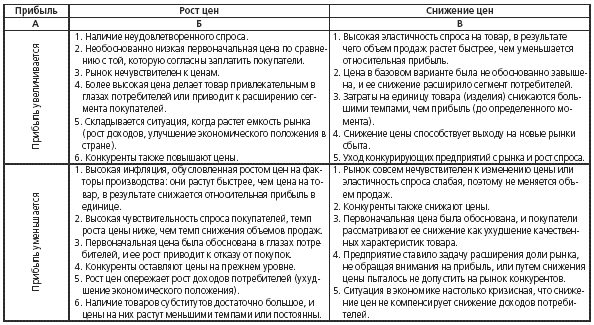 Прибыль
Рост цен
Снижение цен
А
Б
В
Прибыль увеличивается
1. Наличие неудовлетворенного спроса.
2. Необоснованно низкая первоначальная цена по сравне-
нию с той, которую согласны заплатить покупатели.
3. Рынок нечувствителен к ценам.
4. Более высокая цена делает товар привлекательным в
глазах потребителей или приводит к расширению сег-
мента покупателей.
5. Складывается ситуация, когда растет емкость рынка
(рост доходов, улучшение экономического положения в
стране).
6. Конкуренты также повышают цены.
1. Высокая эластичность спроса на товар, в результате
чего объем продаж растет быстрее, чем уменьшается
относительная прибыль.
2. Цена в базовом варианте была не обоснованно завыше-
на, и ее снижение расширило сегмент потребителей.
3. Затраты на единицу товара (изделия) снижаются боль-
шими темпами, чем прибыль (до определенного мо-
мента).
4. Снижение цены способствует выходу на новые рынки
сбыта.
5. Уход конкурирующих предприятий с рынка и рост спроса.
Прибыль уменьшается
1. Высокая инфляция, обусловленная ростом цен на фак-
торы производства: они растут быстрее, чем цена на то-
вар, в результате снижается относительная прибыль в
единице.
2. Высокая чувствительность спроса покупателей, темп
роста цены ниже, чем темп снижения объемов продаж.
3. Первоначальная цена была обоснована в глазах потре-
бителей, и ее рост приводит к отказу от покупок.
4. Конкуренты оставляют цены на прежнем уровне.
5. Рост цен опережает рост доходов потребителей (ухуд-
шение экономического положения).
6. Наличие товаров субститутов достаточно большое, и
цены на них растут меньшими темпами или постоянны.
1. Рынок совсем нечувствителен к изменению цены или
эластичность спроса слабая, поэтому не меняется объ-
ем продаж.
2. Конкуренты также снижают цены.
3. Первоначальная цена была обоснована, и покупатели
рассматривают ее снижение как ухудшение качествен-
ных характеристик товара.
4. Предприятие ставило задачу расширения доли рынка,
не обращая внимания на прибыль, или путем снижения
цены пыталось не допустить на рынок конкурентов.
5. Ситуация в экономике настолько кризисная, что сниже-
ние цен не компенсирует снижение доходов потреби-
телей.